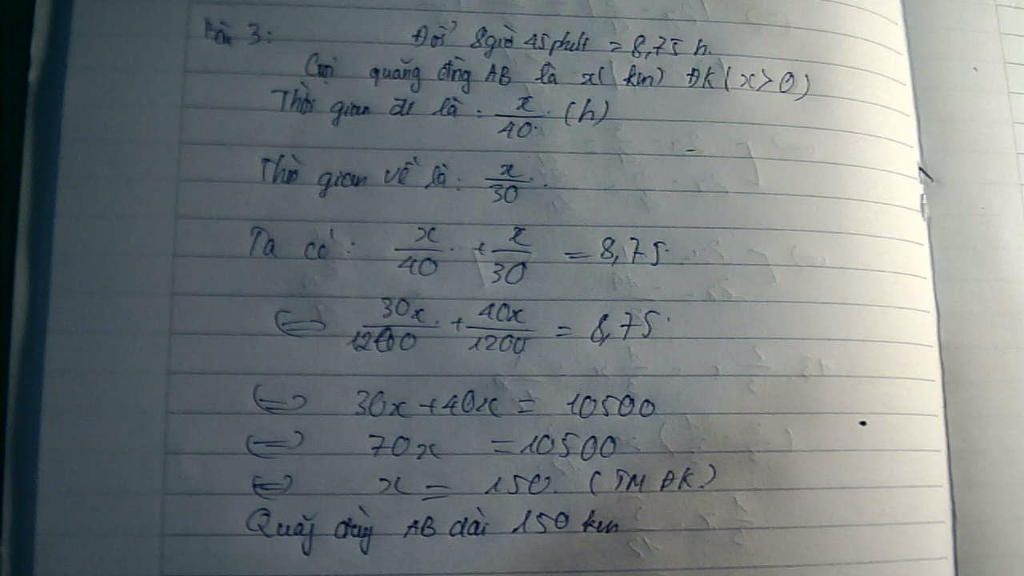 Bài 3: Đổi 8 giờ 45 phút = 8,75 h.
Gọi quãng đường AB là x (km) ĐK (x > 0)
Thời gian đi là: x/40 (h)
Thời gian về là: x/30.
Ta có: x/40 + x/30 = 8,75
⇔ 30x/1200 + 40x/1200 = 8,75
⇔ 30x + 40x = 10500
⇔ 70x = 10500
⇔ x = 150 (TMĐK)
Quãng đường AB dài 150 km